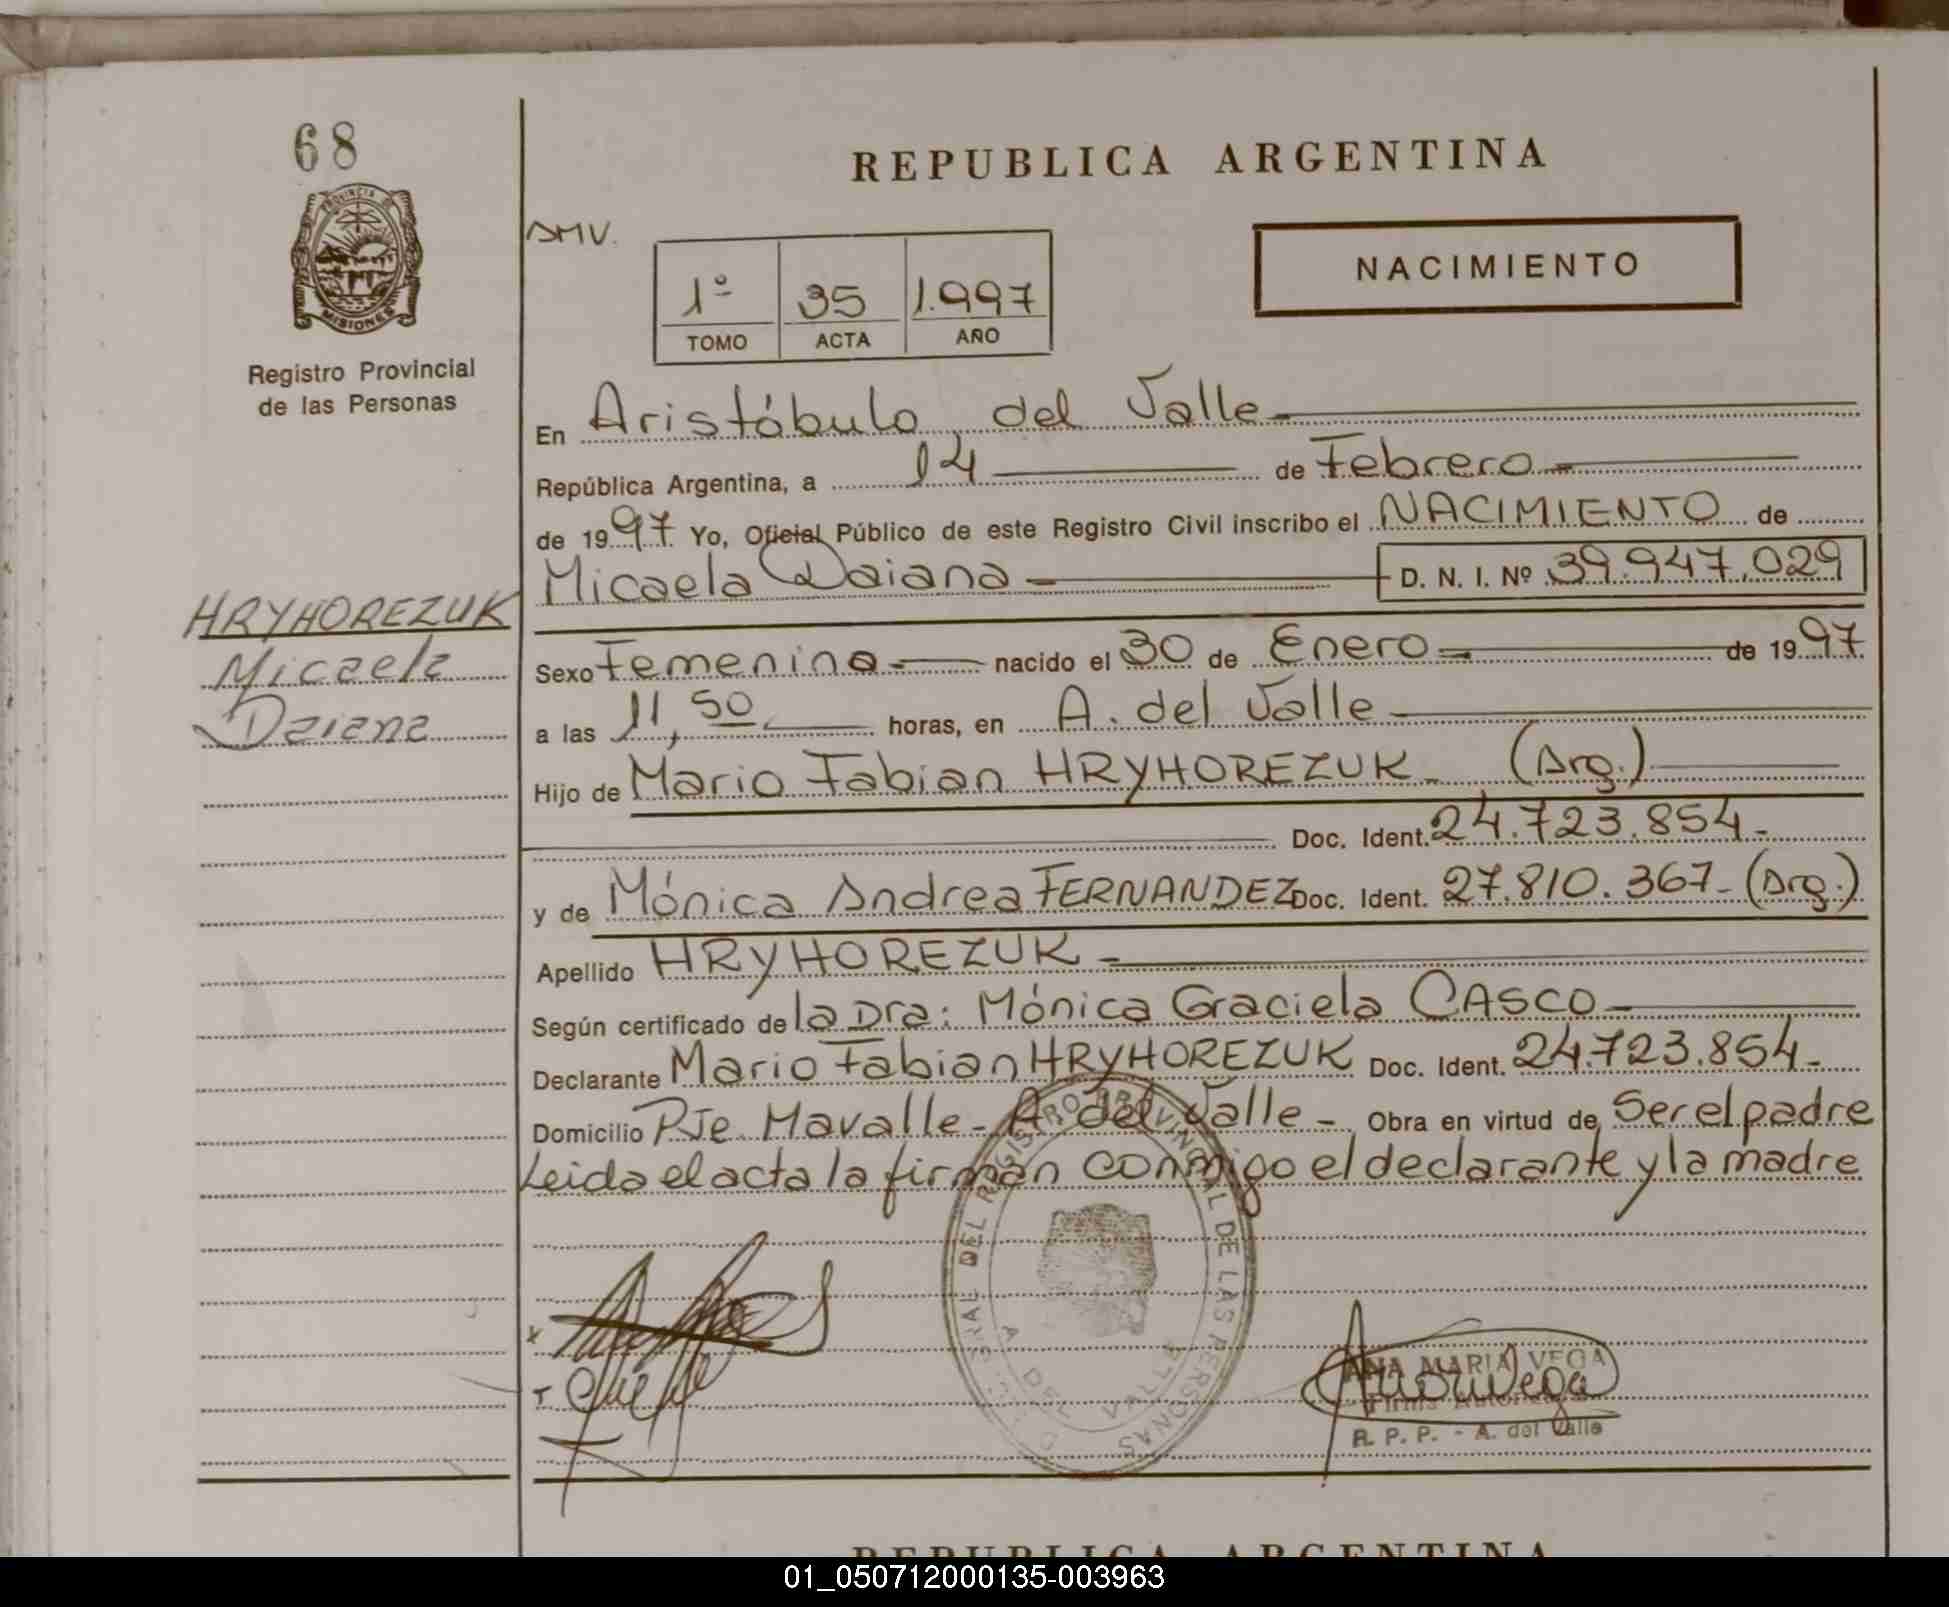 68
PROVINCIA DE
MISIONES
Registro Provincial
de las Personas
HRYHOREZUK
Micaela
Daiana
REPUBLICA ARGENTINA
AMV.
NACIMIENTO
1º 35 1.997
TOMO ACTA AÑO
En Aristóbulo del Valle
República Argentina, a 14 de Febrero
de 1997 Yo, Oficial Público de este Registro Civil inscribo el NACIMIENTO de
Micaela Daiana D. N. I. Nº 39.947.029
Sexo Femenino nacido el 30 de Enero de 1997
a las 11,50 horas, en A. del Valle
Hijo de Mario Fabian HRYHOREZUK (Arg.)
Doc. Ident. 24.723.854
y de Mónica Andrea FERNANDEZ Doc. Ident. 27.810.367 (Arg.)
Apellido HRYHOREZUK
Según certificado de la Dra: Mónica Graciela CASCO
Declarante Mario Fabian HRYHOREZUK Doc. Ident. 24.723.854
Domicilio Pje. Mavalle - A del Valle - Obra en virtud de Ser el padre
Leida el acta la firman conmigo el declarante y la madre
DEL REGISTRO PROVINCIAL DE LAS PERSONAS
A DEL VALLE
ANA MARIA VEGA
Firma Autorizada
R. P. P. - A. del Valle
REPUBLICA ARGENTINA
01_050712000135-003963